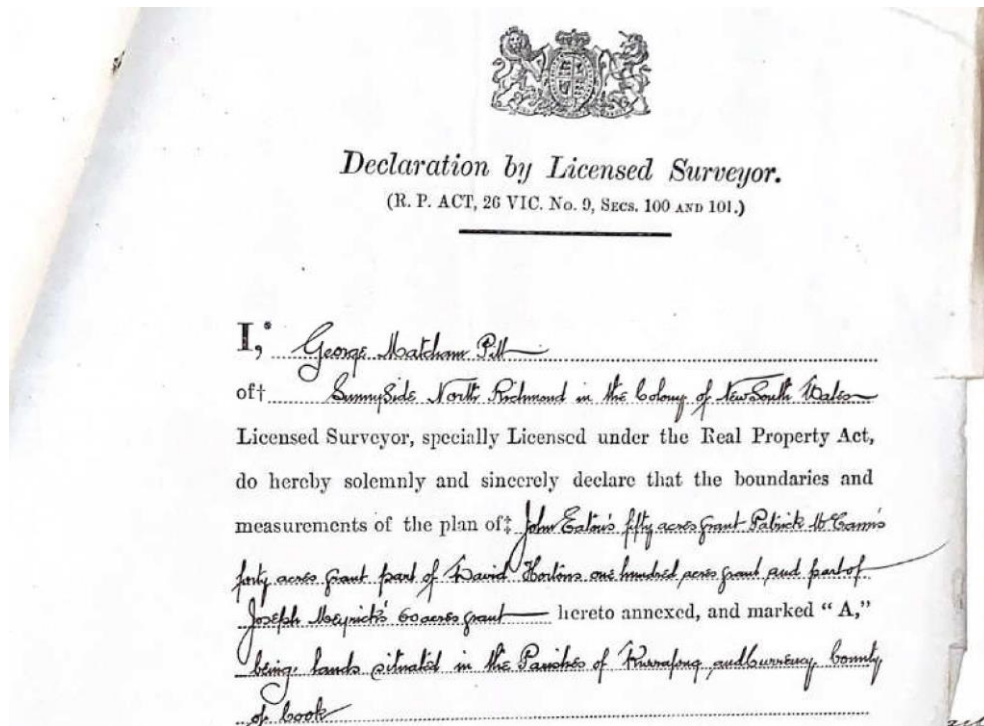 Declaration by Licensed Surveyor.
(R. P. ACT, 26 VIC. No. 9, SECS. 100 AND 101.)
I,* George Matcham Pitt
of† SunnySide North Richmond in the Colony of New South Wales
Licensed Surveyor, specially Licensed under the Real Property Act,
do hereby solemnly and sincerely declare that the boundaries and
measurements of the plan of‡ John Eaton's fifty acres grant Patrick McCann's
forty acres grant part of David Hortons one hundred acres grant and part of
Joseph Meyrick's 60 acres grant hereto annexed, and marked "A,"
being lands situated in the Parishes of Kurrajong and Currency County
of Cook